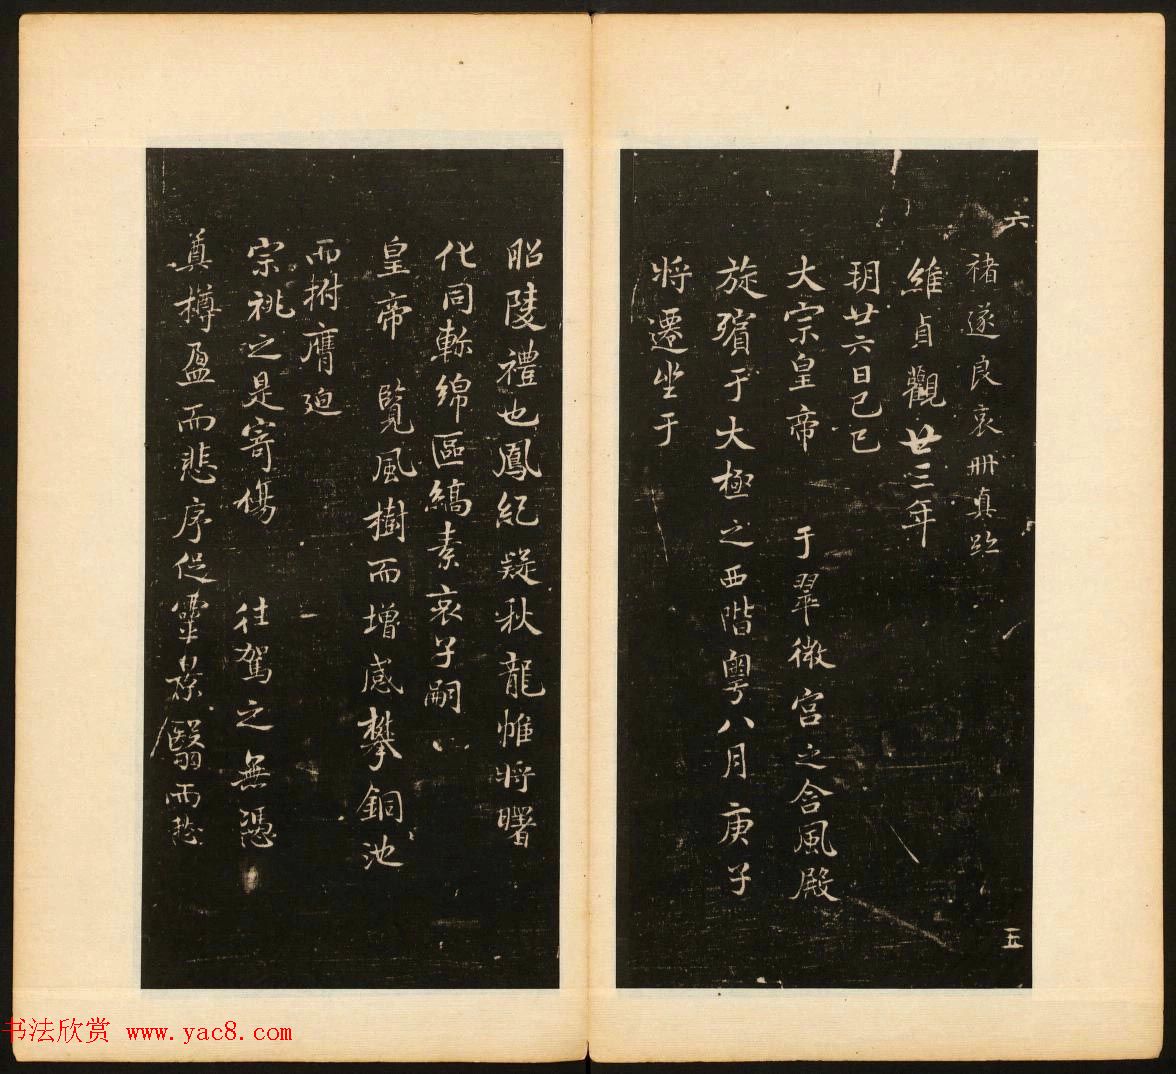 六
褚遂良哀冊真跡
維貞觀廿三年
玥廿六日己巳
大宗皇帝 于翠微宮之含風殿
旋殯于大極之西階粵八月庚子
將遷坐于
五
昭陵禮也鳳紀疑秋龍帷將曙
化同軫綿區縞素哀子嗣
皇帝 覽風樹而增感攀銅池
而拊膺迫
宗祧之是寄傷 往駕之無憑
奠樽盈而悲序促靈翳而愁
书法欣赏 www.yac8.com